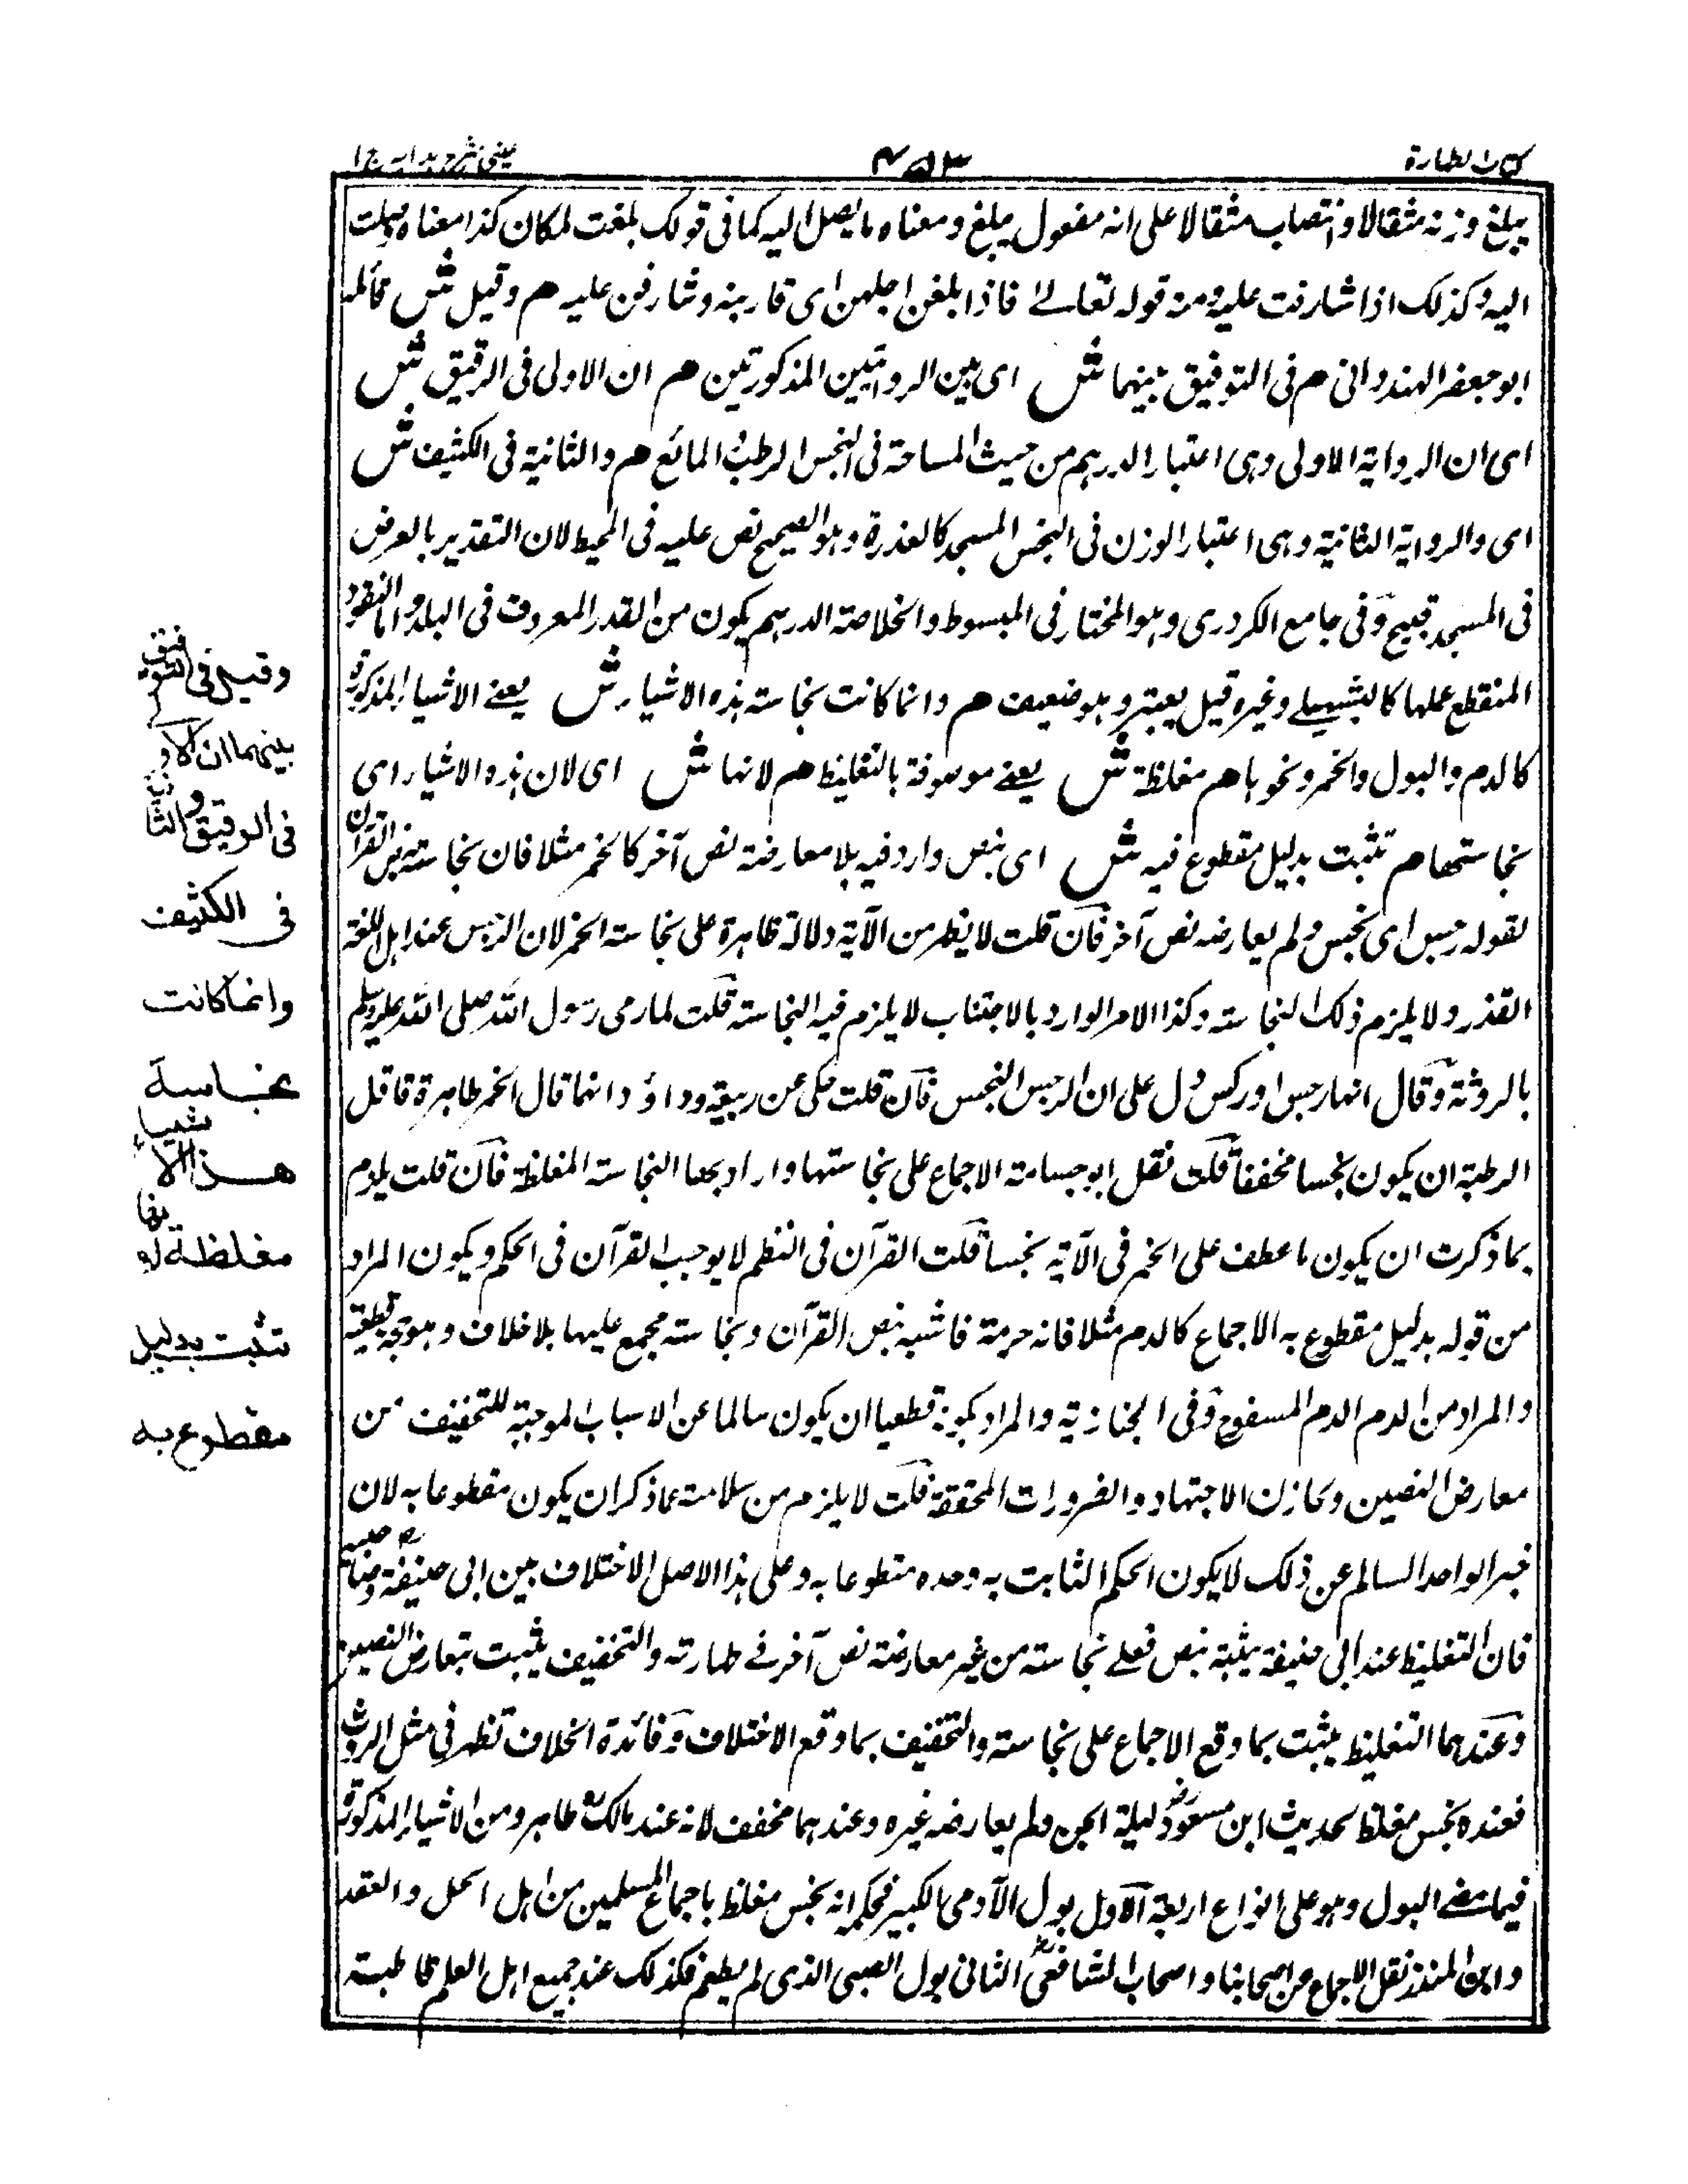 كتاب الطهارة
٤٥٣
عينى شرح هدايه ج ١
يبلغ وزنه مثقالا وانتصاب مثقالا على انه مفعول يبلغ ومعناه ما يصل اليه كما فى قولك بلغت لمكان كذا معناه وصلت
اليه وكذلك اذا شارفت عليه ومنه قوله تعالے فاذا بلغن اجلهن اى قاربنه وشارفن عليه هم وقيل ش قائله
ابو جعفر الهندوانى هم فى التوفيق بينهما ش اى بين الروايتين المذكورتين هم ان الاولى فى الرقيق ش
اى ان الرواية الاولى وهى اعتبار الدرهم من حيث المساحة فى النجس الرطب المائع هم والثانية فى الكثيف ش
اى والرواية الثانية وهى اعتبار الوزن فى النجس المسجد كالعذرة وهو الصحيح نص عليه فى المحيط لان التقدير بالعرض
فى المسجد قبيح وفى جامع الكردرى وهو المختار فى المبسوط والخلاصة الدرهم يكون من القدر المعروف فى البلد واما النقود
المنقطع عملها كالشهيلے وغيره قيل يعتبر وهو ضعيف هم وانما كانت نجاسته هذه الاشياء ش يعنے الاشياء المذكورة
كالدم والبول والخمر ونحوها هم مغلظة ش يعنے موصوفة بالتغليظ هم لانها ش اى لان هذه الاشياء اى
نجاستها هم تثبت بدليل مقطوع فيه ش اى بنص وارد فيه بلا معارضة نص آخر كالخمر مثلا فان نجاسته بنص القرآن
لقوله رجس اى نجس ولم يعارضه نص آخر فان قلت لا يظهر من الآية دلالة ظاهرة على نجاسته الخمر لان الرجس عند اهل اللغة
القذر ولا يلزم ذلك النجاسته وكذا الامر الوارد بالاجتناب لا يلزم فيه النجاسته قلت لما رمى رسول الله صلى الله عليه وسلم
بالروثة وقال انها رجس او ركس دل على ان الرجس النجس فان قلت حكى عن ربيعة وداؤد انهما قال الخمر طاهرة فاقل
الرطبة ان يكون نجسا مخففا قلت نقل ابو حسامته الاجماع على نجاستها واراد بها النجاسته المغلظة فان قلت يلزم
بما ذكرت ان يكون ما عطف على الخمر فى الآية نجسا قلت القرآن فى النظم لا يوجب القرآن فى الحكم ويكون المراد
من قوله بدليل مقطوع به الاجماع كالدم مثلا فانه حرمة فاشبه نص القرآن ونجاسته مجمع عليها بلا خلاف وهو حجة قطعية
والمراد من الدم الدم المسفوح وفى الخبازية والمراد بكونه قطعيا ان يكون سالما عن الاسباب الموجبة للتخفيف من
معارض النصين وتجاذب الاجتهاد والضرورات المخففة قلت لا يلزم من سلامته عما ذكر ان يكون مقطوعا به لان
خبر الواحد السالم عن ذلك لا يكون الحكم الثابت به وحده مقطوعا به وعلى هذا الاصل الاختلاف بين ابى حنيفة وصاحبيه
فان التغليظ عند ابى حنيفة يثبته بنص فعلے نجاسته من غير معارضة نص آخر فے طهارته والتخفيف يثبت بتعارض النصين
وعندهما التغليظ يثبت بما وقع الاجماع على نجاسته والتخفيف بما وقع الاختلاف وفائدة الخلاف تظهر فى مثل الروث
فعنده نجس مغلظ لحديث ابن مسعود ليلة الجن ولم يعارضه غيره وعندهما مخفف لانه عند مالك طاهر ومن الاشياء المذكورة
فيما مضے البول وهو على انواع اربعة الاول بول الآدمى الكبير فحكمه انه نجس مغلظ باجماع المسلمين من اهل الحل والعقد
وابن المنذر نقل الاجماع عن اصحابنا واصحاب الشافعى الثانى بول الصبى الذى لم يطعم فكذلك عند جميع اهل العلم قاطبة
وقيل فى التوفيق
بينهما ان الاولے
فى الرقيق والثانية
فى الكثيف
وانما كانت
نجاسة
هذه الاشياء
مغلظة لانها
تثبت بدليل
مقطوع به